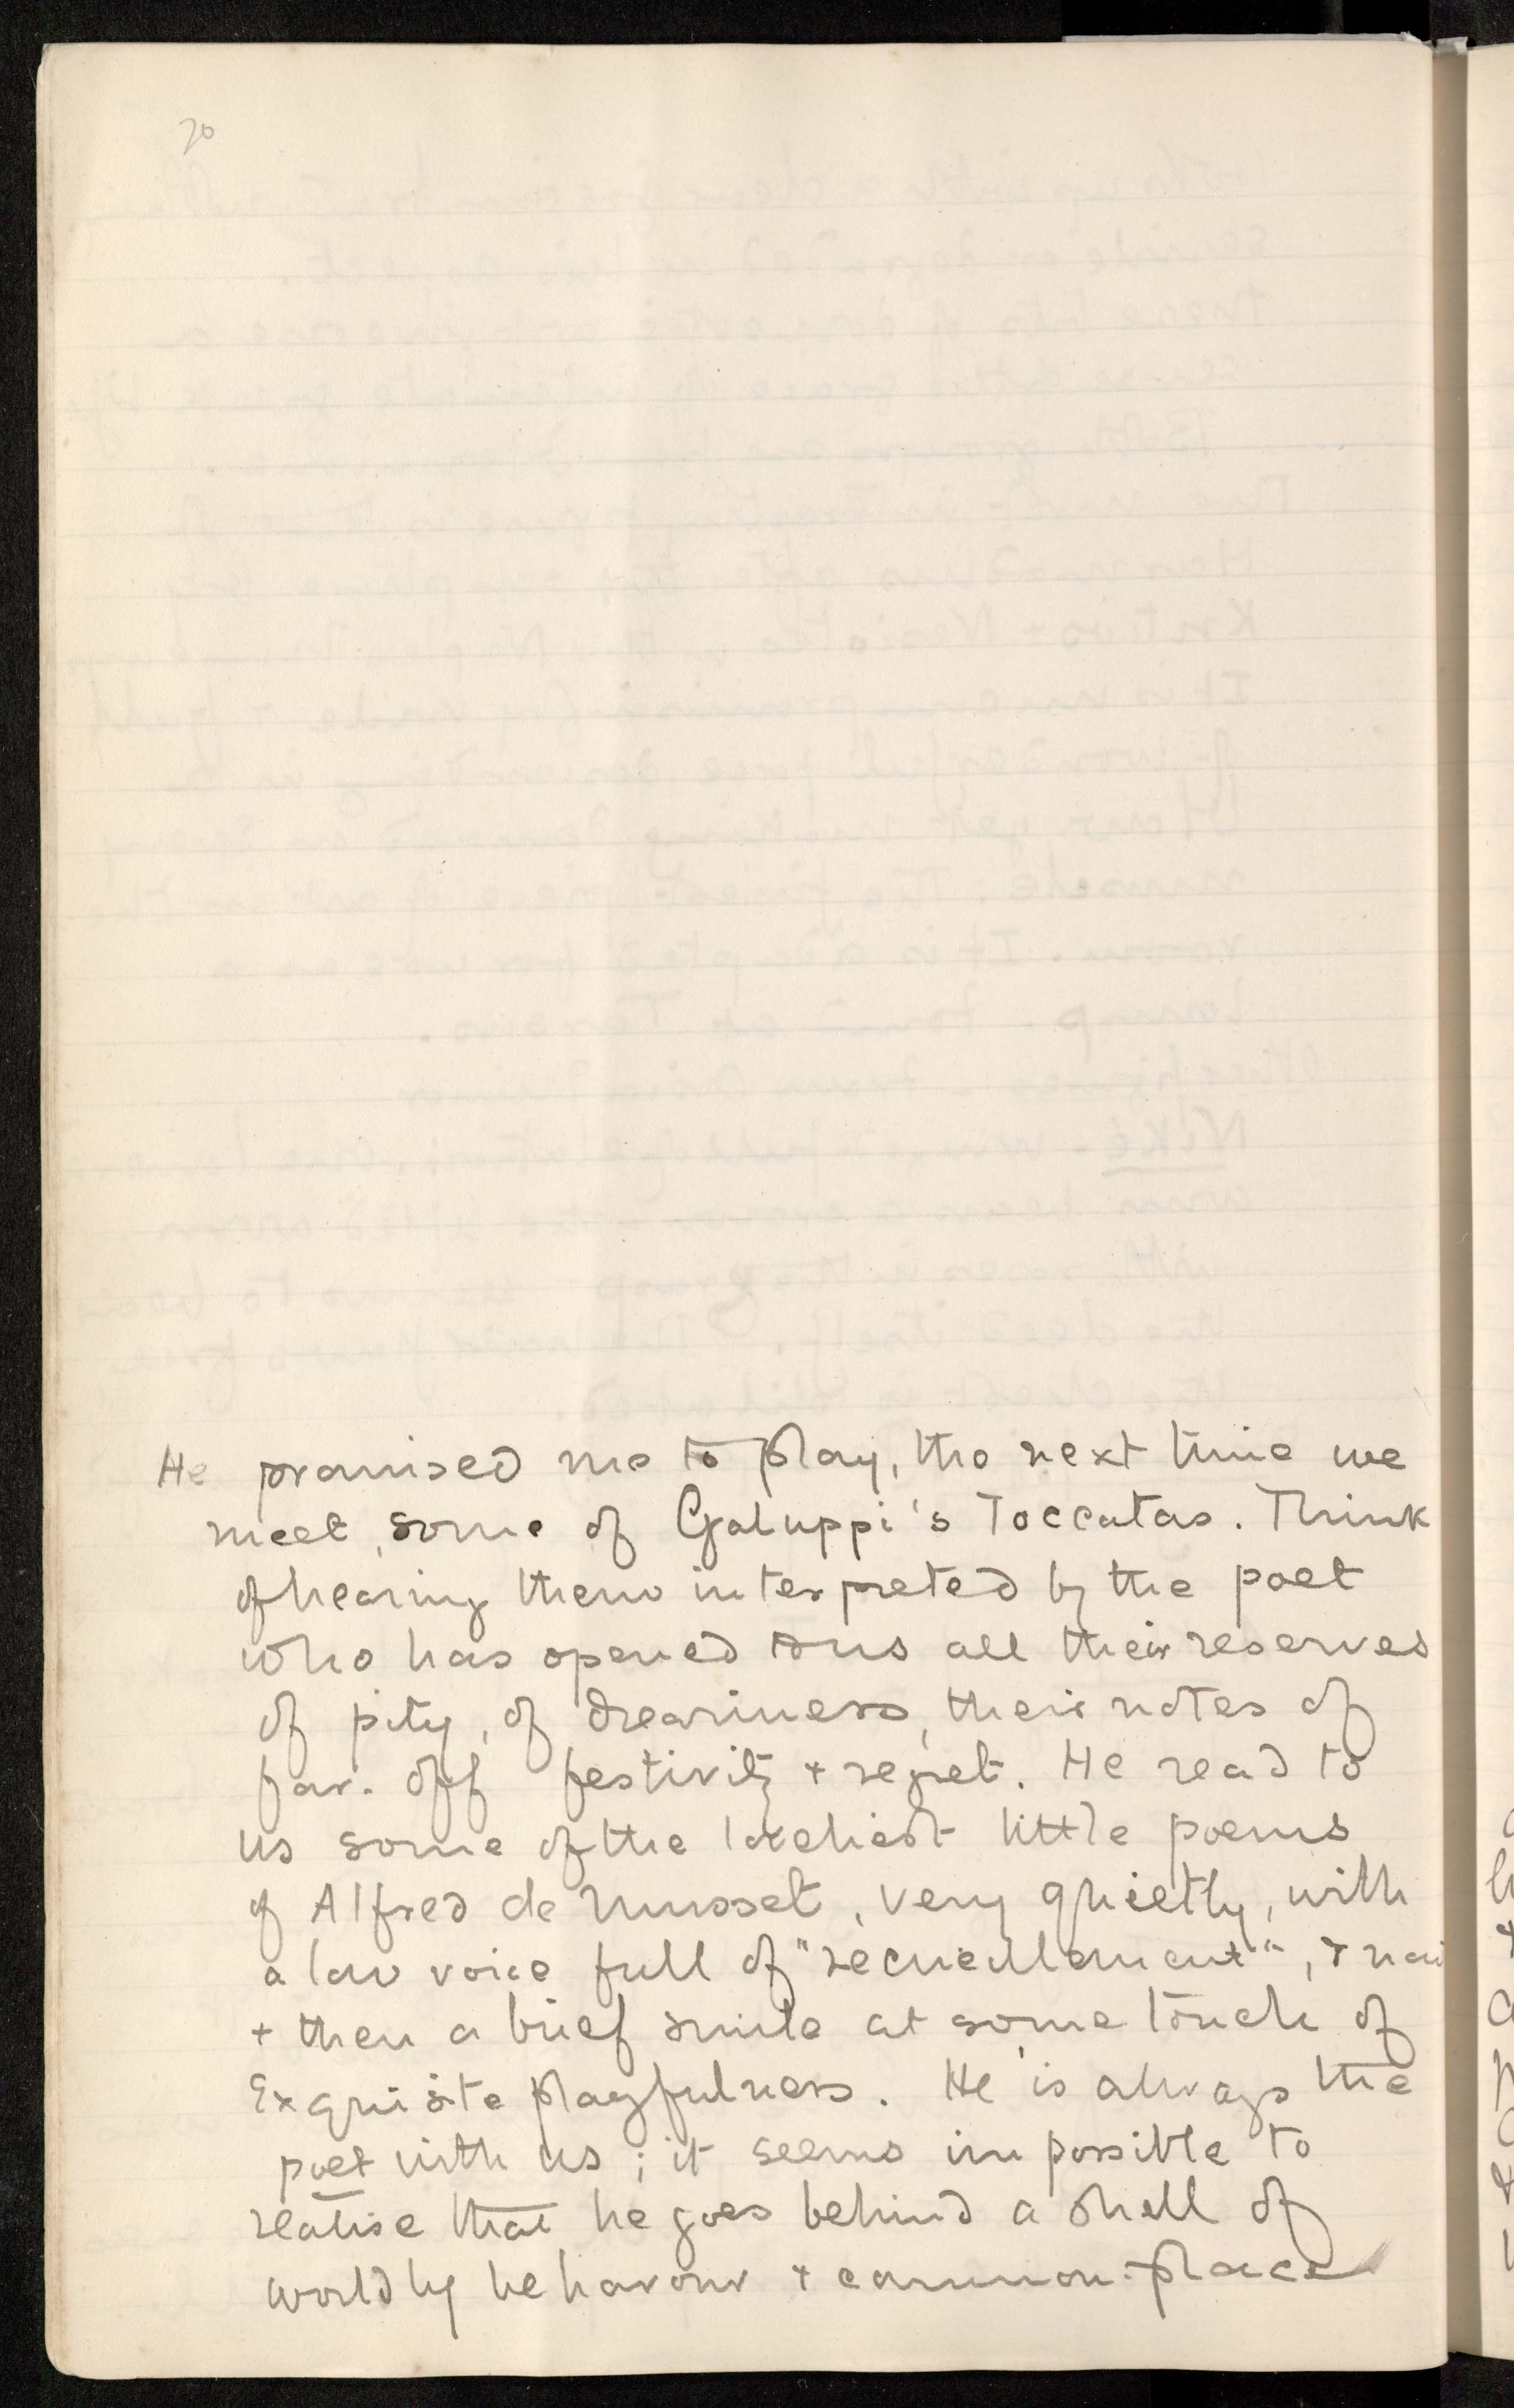 20
He promised me to play, the next time we
meet, some of Galuppi's Toccatas. Think
of hearing them interpreted by the poet
who has opened to us all their reserves
of pity, of dreariness, their notes of
far-off festivity + regret. He read to
us some of the loveliest little poems
of Alfred de Musset, very quietly, with
a low voice full of "recueillement", + now
+ then a brief smile at some touch of
exquisite playfulness. He is always the
poet with us; it seems impossible to
realise that he goes behind a shell of
worldly behavour + common-place